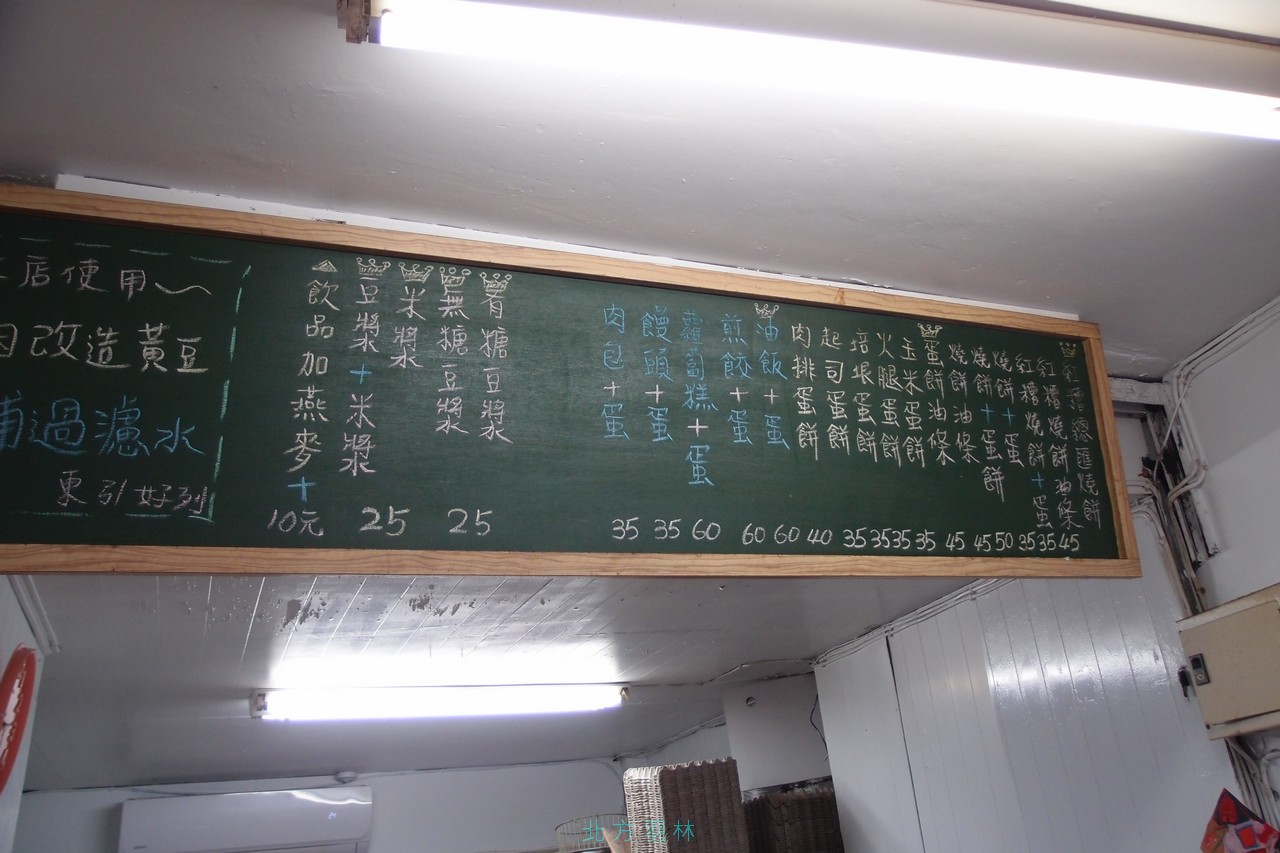 紅糟總匯燒餅
紅糟燒餅油條
紅糟燒餅+蛋
燒餅+蛋
燒餅+蛋餅
燒餅油條
蛋餅油條
玉米蛋餅
火腿蛋餅
培垠蛋餅
起司蛋餅
肉排蛋餅
油飯+蛋
煎餃+蛋
蘿蔔糕+蛋
饅頭+蛋
肉包+蛋
35 35 60 60 60 40 35 35 35 35 45 45 50 35 35 45
有糖豆漿
無糖豆漿
25
米漿
豆漿+米漿
25
飲品加燕麥+
10元
店使用～
改造黃豆
過濾水
東引好列
北方 林